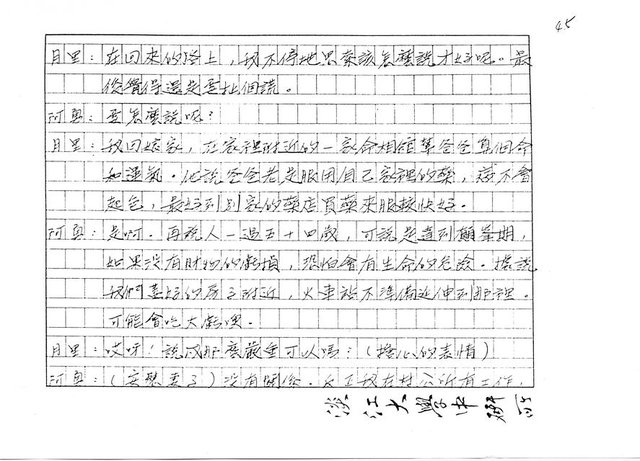 45
目里：在回來的路上，我不停地思索該怎麼說才好呢。最
後覺得還是要扯個謊。
阿貞：要怎麼說呢？
目里：我回娘家，在家裡附近的一家命相館幫爸爸算個命
和運氣。他說爸爸老是服用自己家裡的藥，這不會
起色，最好到別家的藥店買藥來服較快好。
阿貞：是啊。再說人一過五十四歲，可說是達到顛峯期，
如果沒有財物的虧損，恐怕會有生命的危險。據說
我們蓋好的房子附近，火車站不準備延伸到那裡。
可能會吃大虧哩。
目里：哎呀！說成那麼嚴重可以嗎？（擔心的表情）
阿貞：（安慰妻子）沒有關係。反正我在基公所有工作，
淡江大學中研所